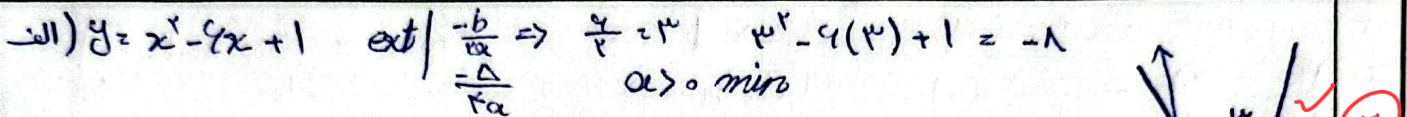 الف) y = x² - ۶x + 1 ext | -b/۲a ⇒ ۶/۲ = ۳ ۳² - ۶(۳) + 1 = -۸
-Δ/۴a a>۰ min
۳